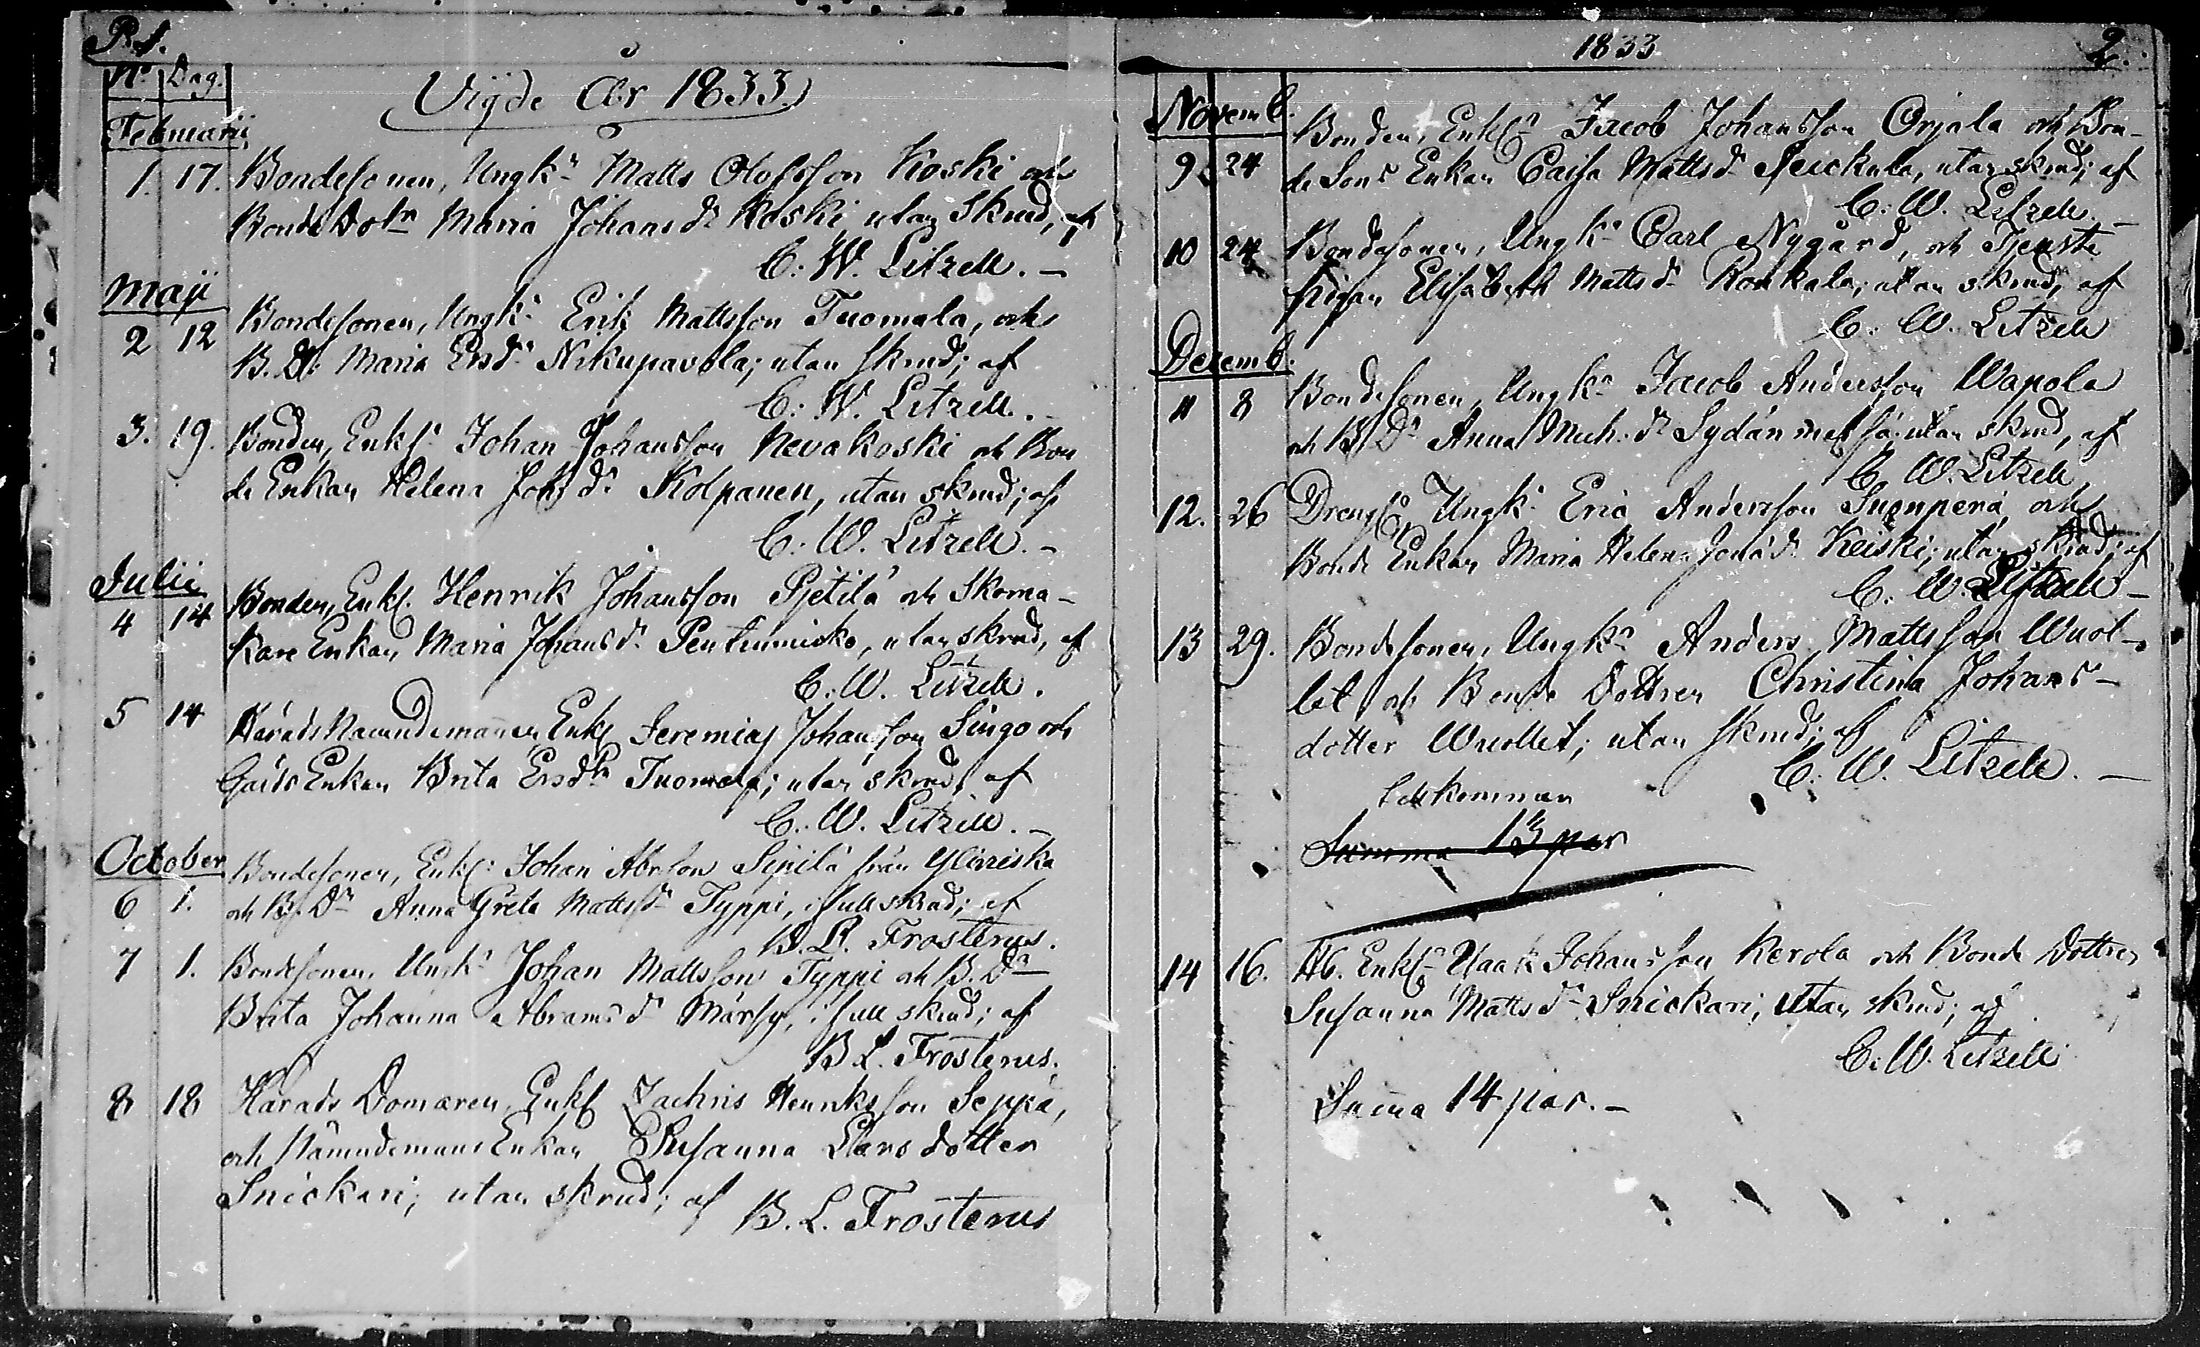 P. 1.
N:o Dag.
Vigde År 1833.
Februarii
1. 17. Bondesonen, Ungk:n Matts Olofsson Koski och
Bonde Dotn Maria Johansd:r Koski, utan Skrud, af
C: W. Litzell. –
Maji
2 12 Bondesonen, Ungk:n Erik Mattsson Tuomala, och
B. D:n Maria Ersd:r Nikupavola; utan skrud; af
C: W. Litzell. –
3. 19. Bonden, Enkl:n Johan Johansson Nevakoski och Bon
de Enkan Helena Johsd:r Kolpanen, utan skrud; af
C: W. Litzell. –
Julii
4 14 Bonden, Enkl. Henrik Johansson Pjetilä och Skoma-
kare Enkan Maria Johansd:r , utan skrud, af
C: W. Litzell.
5 14 Härads Nämndemannen, Enkl Jeremias Johansson Singo och
Gårds Enkan Brita Ersd:r Tuomala; utan skrud; af
C: W. Litzell. –
October
6 1. Bondesonen, Enkl: Johan Abrson Sipilä från Yliviska
och B. D:n Anna Greta Mattsd:r Typpi, i full skrud; af
B. L. Frosterus.
7 1. Bondesonen, Ungk:n Johan Mattsson Typpi och B. D:n
Brita Johanna Abramsd:r Märsy, i full skrud; af
B L. Frosterus.
8 18 Härads Domaren, Enkl Zachris Henriksson Seppä,
och Nämndemans Enkan Susanna Larsdotter
Snickari; utan skrud; af B. L. Frosterus
1833 2.
Novemb.
9 24 Bonden, Enkl:n Jacob Johansson Orjala och Bon-
de Sons Enkan Caisa Mattsd:r , utan skrud; af
C: W. Litzell. –
10 24 Bondesonen, Ungk:n Carl Nygård, och Tjenste
pigan Elisabeth Mattsd:r Konkala; utan skrud, af
C: W. Litzell
Decemb:
11 8 Bondesonen, Ungk:n Jacob Andersson Wapola
och B D:n Anna Mich:d:r Sydänmetsä, utan skrud, af
C. W. Litzell
12. 26 Dreng, Ungk: Eric Andersson Suonperä och
Bonde Enkan Maria Helena Jonsd:r Keiski; utan skrud; af
C. W. Litzell –
13 29. Bondesonen, Ungk:n Anders Mattsson Wuol-
let och Bonde Dottren Christina Johans-
dotter Wuollet; utan skrud; af
C: W. Litzell. –
Summa 13 par
14 16. Enkl:n Isaak Johansson Kerola och Bonde Dottren
Susanna Mattsd:r Snickari; utan skrud; af
C. W. Litzell
Suma 14 par. –